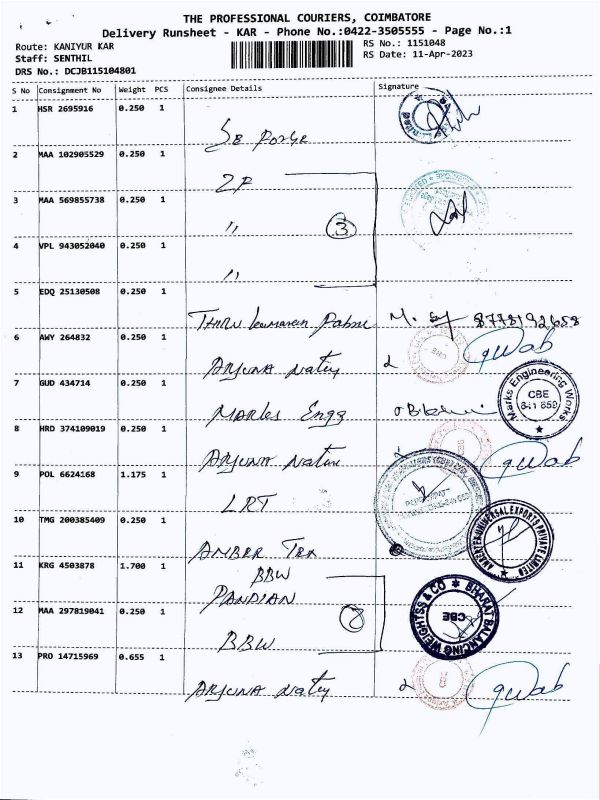 THE PROFESSIONAL COURIERS, COIMBATORE
Delivery Runsheet - KAR - Phone No.:0422-3505555 - Page No.:1
Route: KANIYUR KAR
Staff: SENTHIL
DRS No.: DCJB115104801
RS No.: 1151048
RS Date: 11-Apr-2023
S No Consignment No Weight PCS Consignee Details Signature
1 HSR 2695916 0.250 1
SB Forge
2 MAA 102905529 0.250 1
ZF
3 MAA 569855738 0.250 1
" 3
4 VPL 943052040 0.250 1
"
5 EDQ 25130508 0.250 1
THIRU 8778192658
6 AWY 264832 0.250 1
ARJUNA
7 GUD 434714 0.250 1
Marks Engg
Marks Engineering Works
CBE
641 659
8 HRD 374109019 0.250 1
ARJUNA
9 POL 6624168 1.175 1
LRT
10 TMG 200385409 0.250 1
AMBER Tex
UNIVERSAL EXPORTS PRIVATE LIMITED
11 KRG 4503878 1.700 1
BBW
PANDIAN
12 MAA 297819041 0.250 1
BBW
BHARAT BALANCING WEIGHTSS & CO
CBE
13 PRO 14715969 0.655 1
ARJUNA